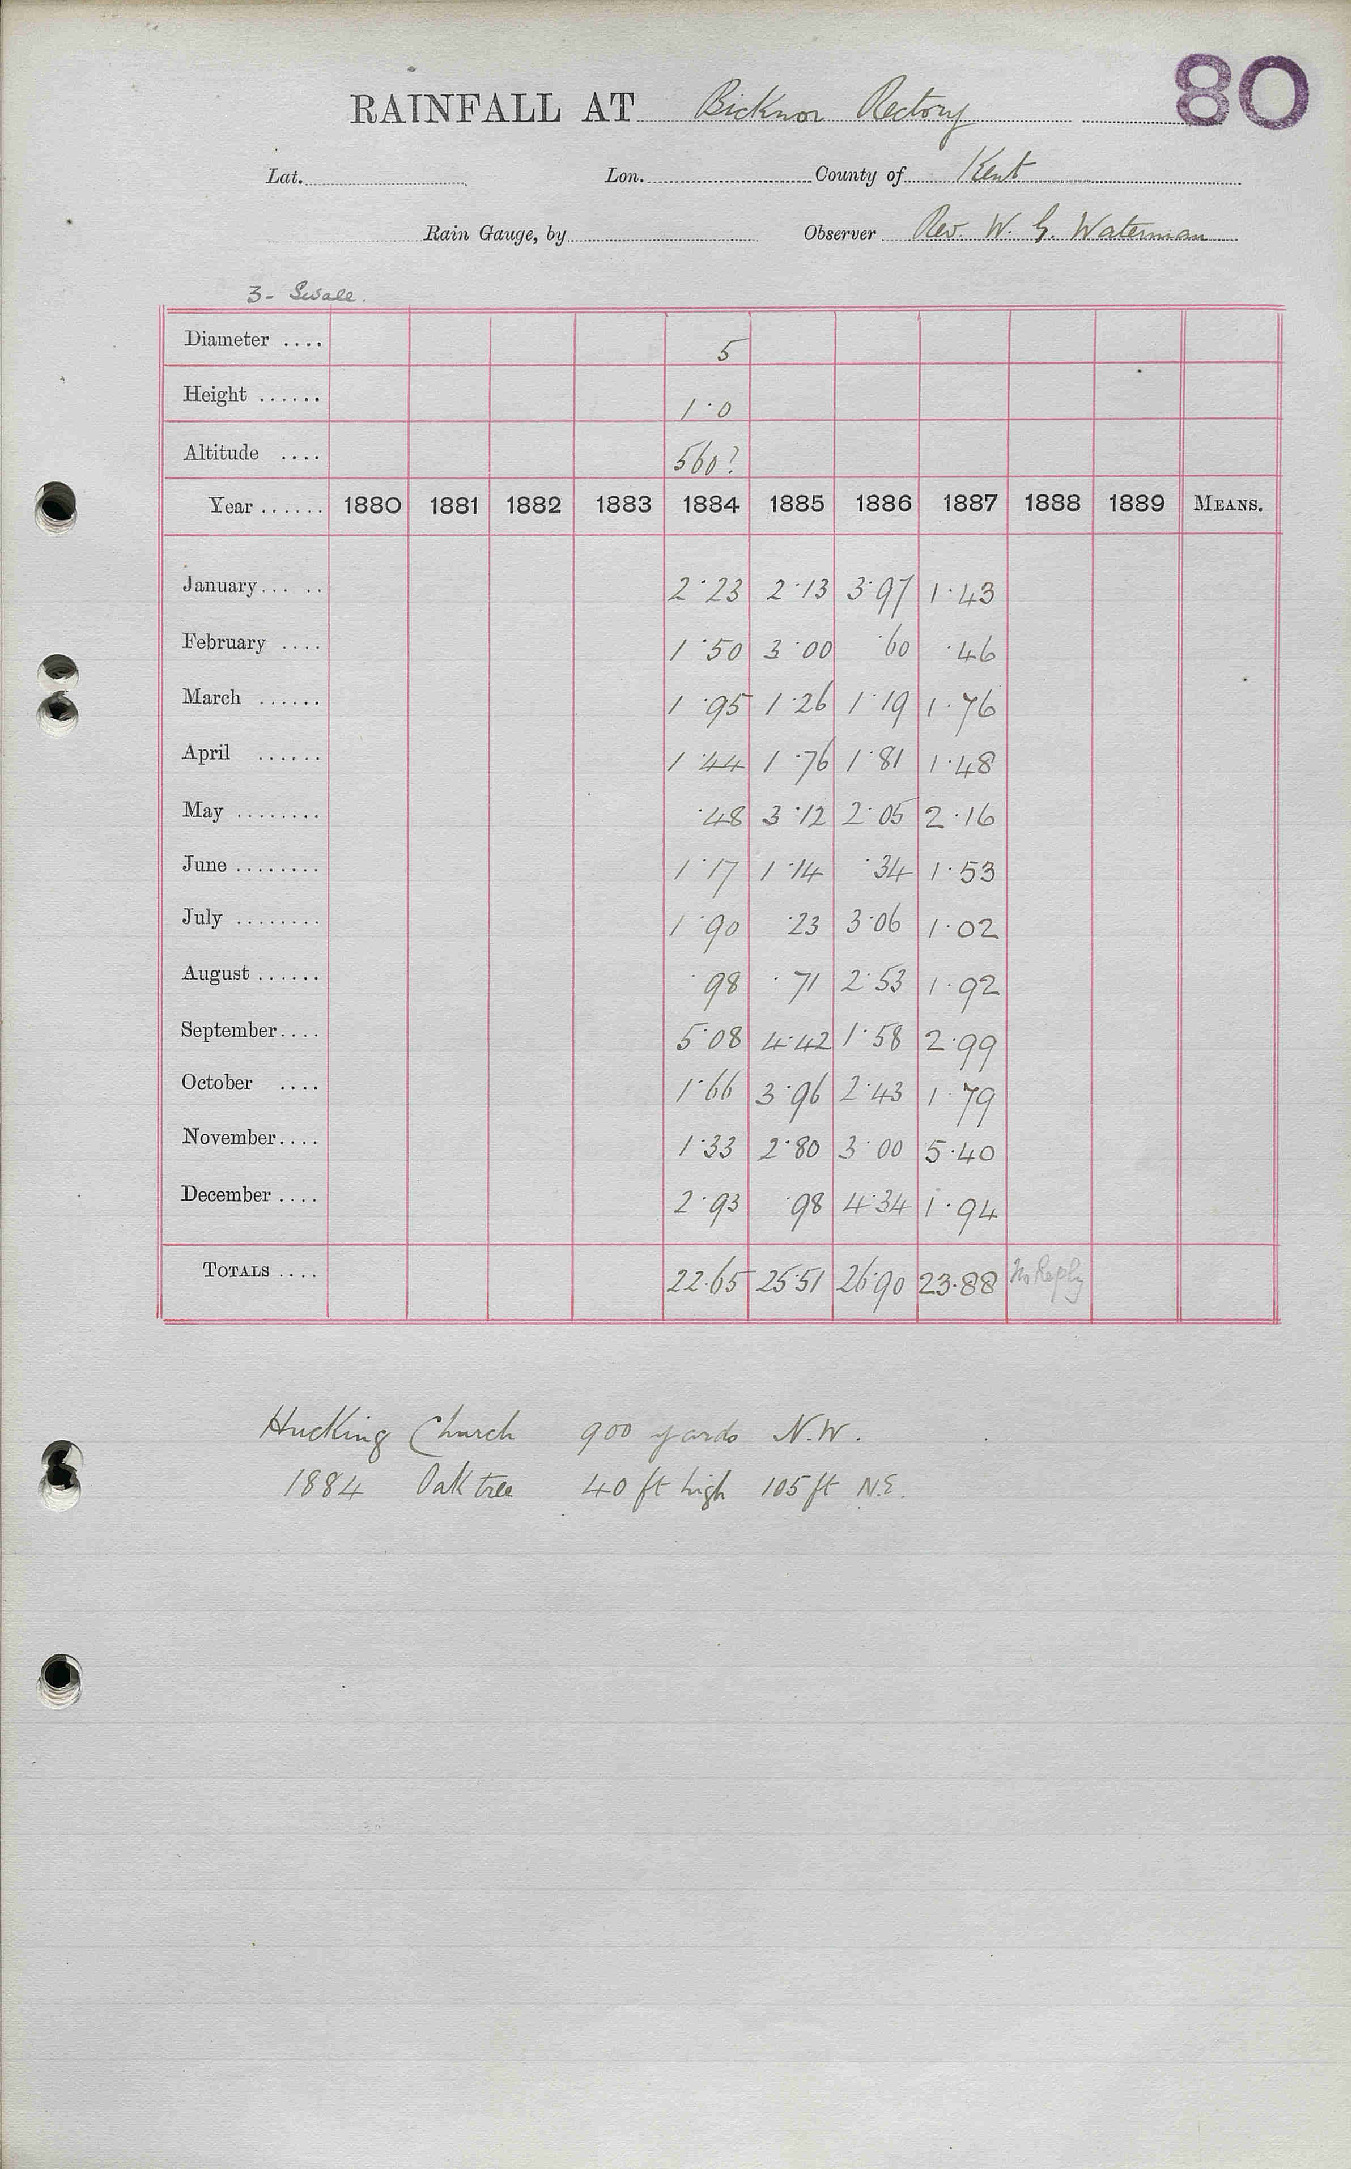 80
RAINFALL AT Bicknor Rectory
Lat. Lon. County of Kent
Rain Gauge, by Observer Rev. W. G. Waterman
3 - Swale.
Diameter .... 5
Height ...... 1·0
Altitude .... 560?
Year ...... 1880 1881 1882 1883 1884 1885 1886 1887 1888 1889 MEANS.
January... .. 2·23 2·13 3·97 1·43
February .... 1·50 3·00 ·60 ·46
March ...... 1·95 1·26 1·19 1·76
April ...... 1·44 1·76 1·81 1·48
May ........ ·48 3·12 2·05 2·16
June ........ 1·17 1·14 ·34 1·53
July ........ 1·90 ·23 3·06 1·02
August ...... ·98 ·71 2·53 1·92
September.... 5·08 4·42 1·58 2·99
October .... 1·66 3·96 2·43 1·79
November.... 1·33 2·80 3·00 5·40
December .... 2·93 ·98 4·34 1·94
TOTALS .... 22·65 25·51 26·90 23·88 No Reply
Hucking Church 900 yards N.W.
1884 Oak tree 40 ft high 105 ft N.E.